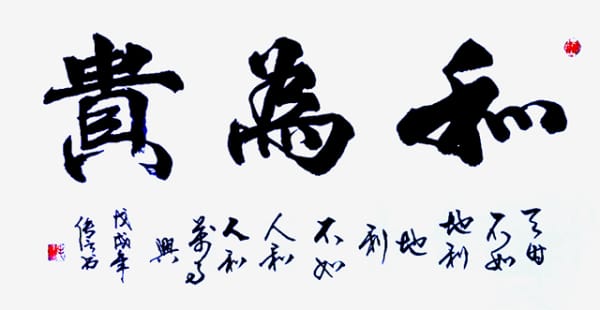 和為貴
天时
不如
地利
地
利
不如
人和
人和
萬事
興
戊戌年